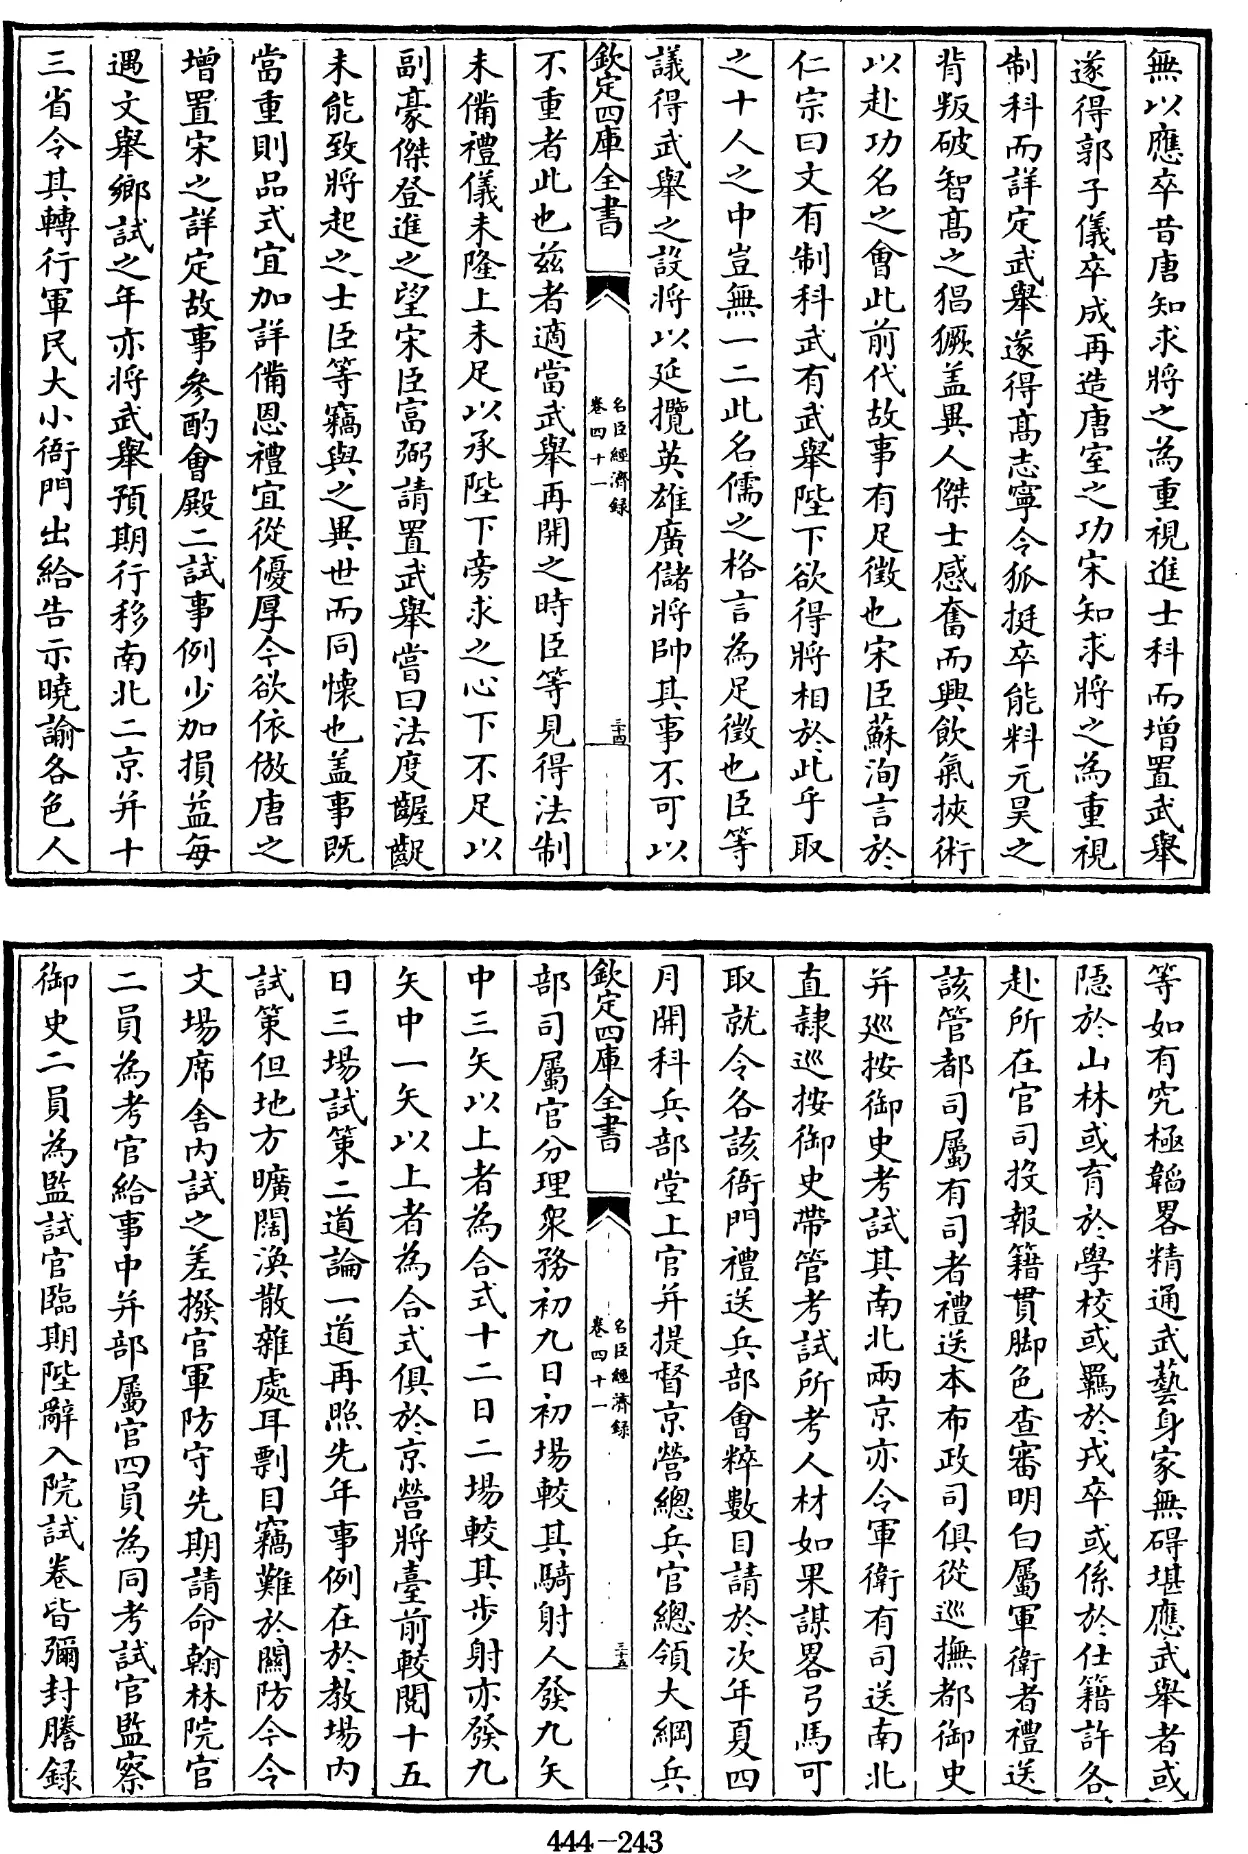 無以應卒昔唐知求將之為重視進士科而增置武舉
遂得郭子儀卒成再造唐室之功宋知求將之為重視
制科而詳定武舉遂得髙志寧令狐挺卒能料元昊之
背叛破智髙之猖獗盖異人傑士感奮而興飲氣挾術
以赴功名之會此前代故事有足徴也宋臣蘇洵言於
仁宗曰文有制科武有武舉陛下欲得將相於此乎取
之十人之中豈無一二此名儒之格言為足徴也臣等
議得武舉之設將以延攬英雄廣儲將帥其事不可以
欽定四庫全書
名臣經濟録
卷四十一
三十四
不重者此也兹者適當武舉再開之時臣等見得法制
未備禮儀未隆上未足以承陛下旁求之心下不足以
副豪傑登進之望宋臣富弼請置武舉嘗曰法度齷齪
未能致將起之士臣等竊與之異世而同懐也盖事既
當重則品式宜加詳備恩禮宜從優厚今欲依倣唐之
增置宋之詳定故事參酌會殿二試事例少加損益每
遇文舉鄉試之年亦將武舉預期行移南北二京并十
三省令其轉行軍民大小衙門出給告示曉諭各色人
等如有究極韜畧精通武藝身家無碍堪應武舉者或
隠於山林或育於學校或羈於戎卒或係於仕籍許各
赴所在官司投報籍貫脚色查審明白屬軍衛者禮送
該管都司屬有司者禮送本布政司俱從巡撫都御史
并巡按御史考試其南北兩京亦令軍衛有司送南北
直隷巡按御史帶管考試所考人材如果謀畧弓馬可
取就令各該衙門禮送兵部會粹數目請於次年夏四
月開科兵部堂上官并提督京營總兵官總領大綱兵
欽定四庫全書
名臣經濟録
卷四十一
三十五
部司屬官分理衆務初九日初場較其騎射人發九矢
中三矢以上者為合式十二日二場較其步射亦發九
矢中一矢以上者為合式俱於京營將臺前較閱十五
日三場試策二道論一道再照先年事例在於教場内
試策但地方曠闊渙散雜處耳剽目竊難於關防今令
文場席舍内試之差撥官軍防守先期請命翰林院官
二員為考官給事中并部屬官四員為同考試官監察
御史二員為監試官臨期陛辭入院試卷皆彌封謄録
444-243